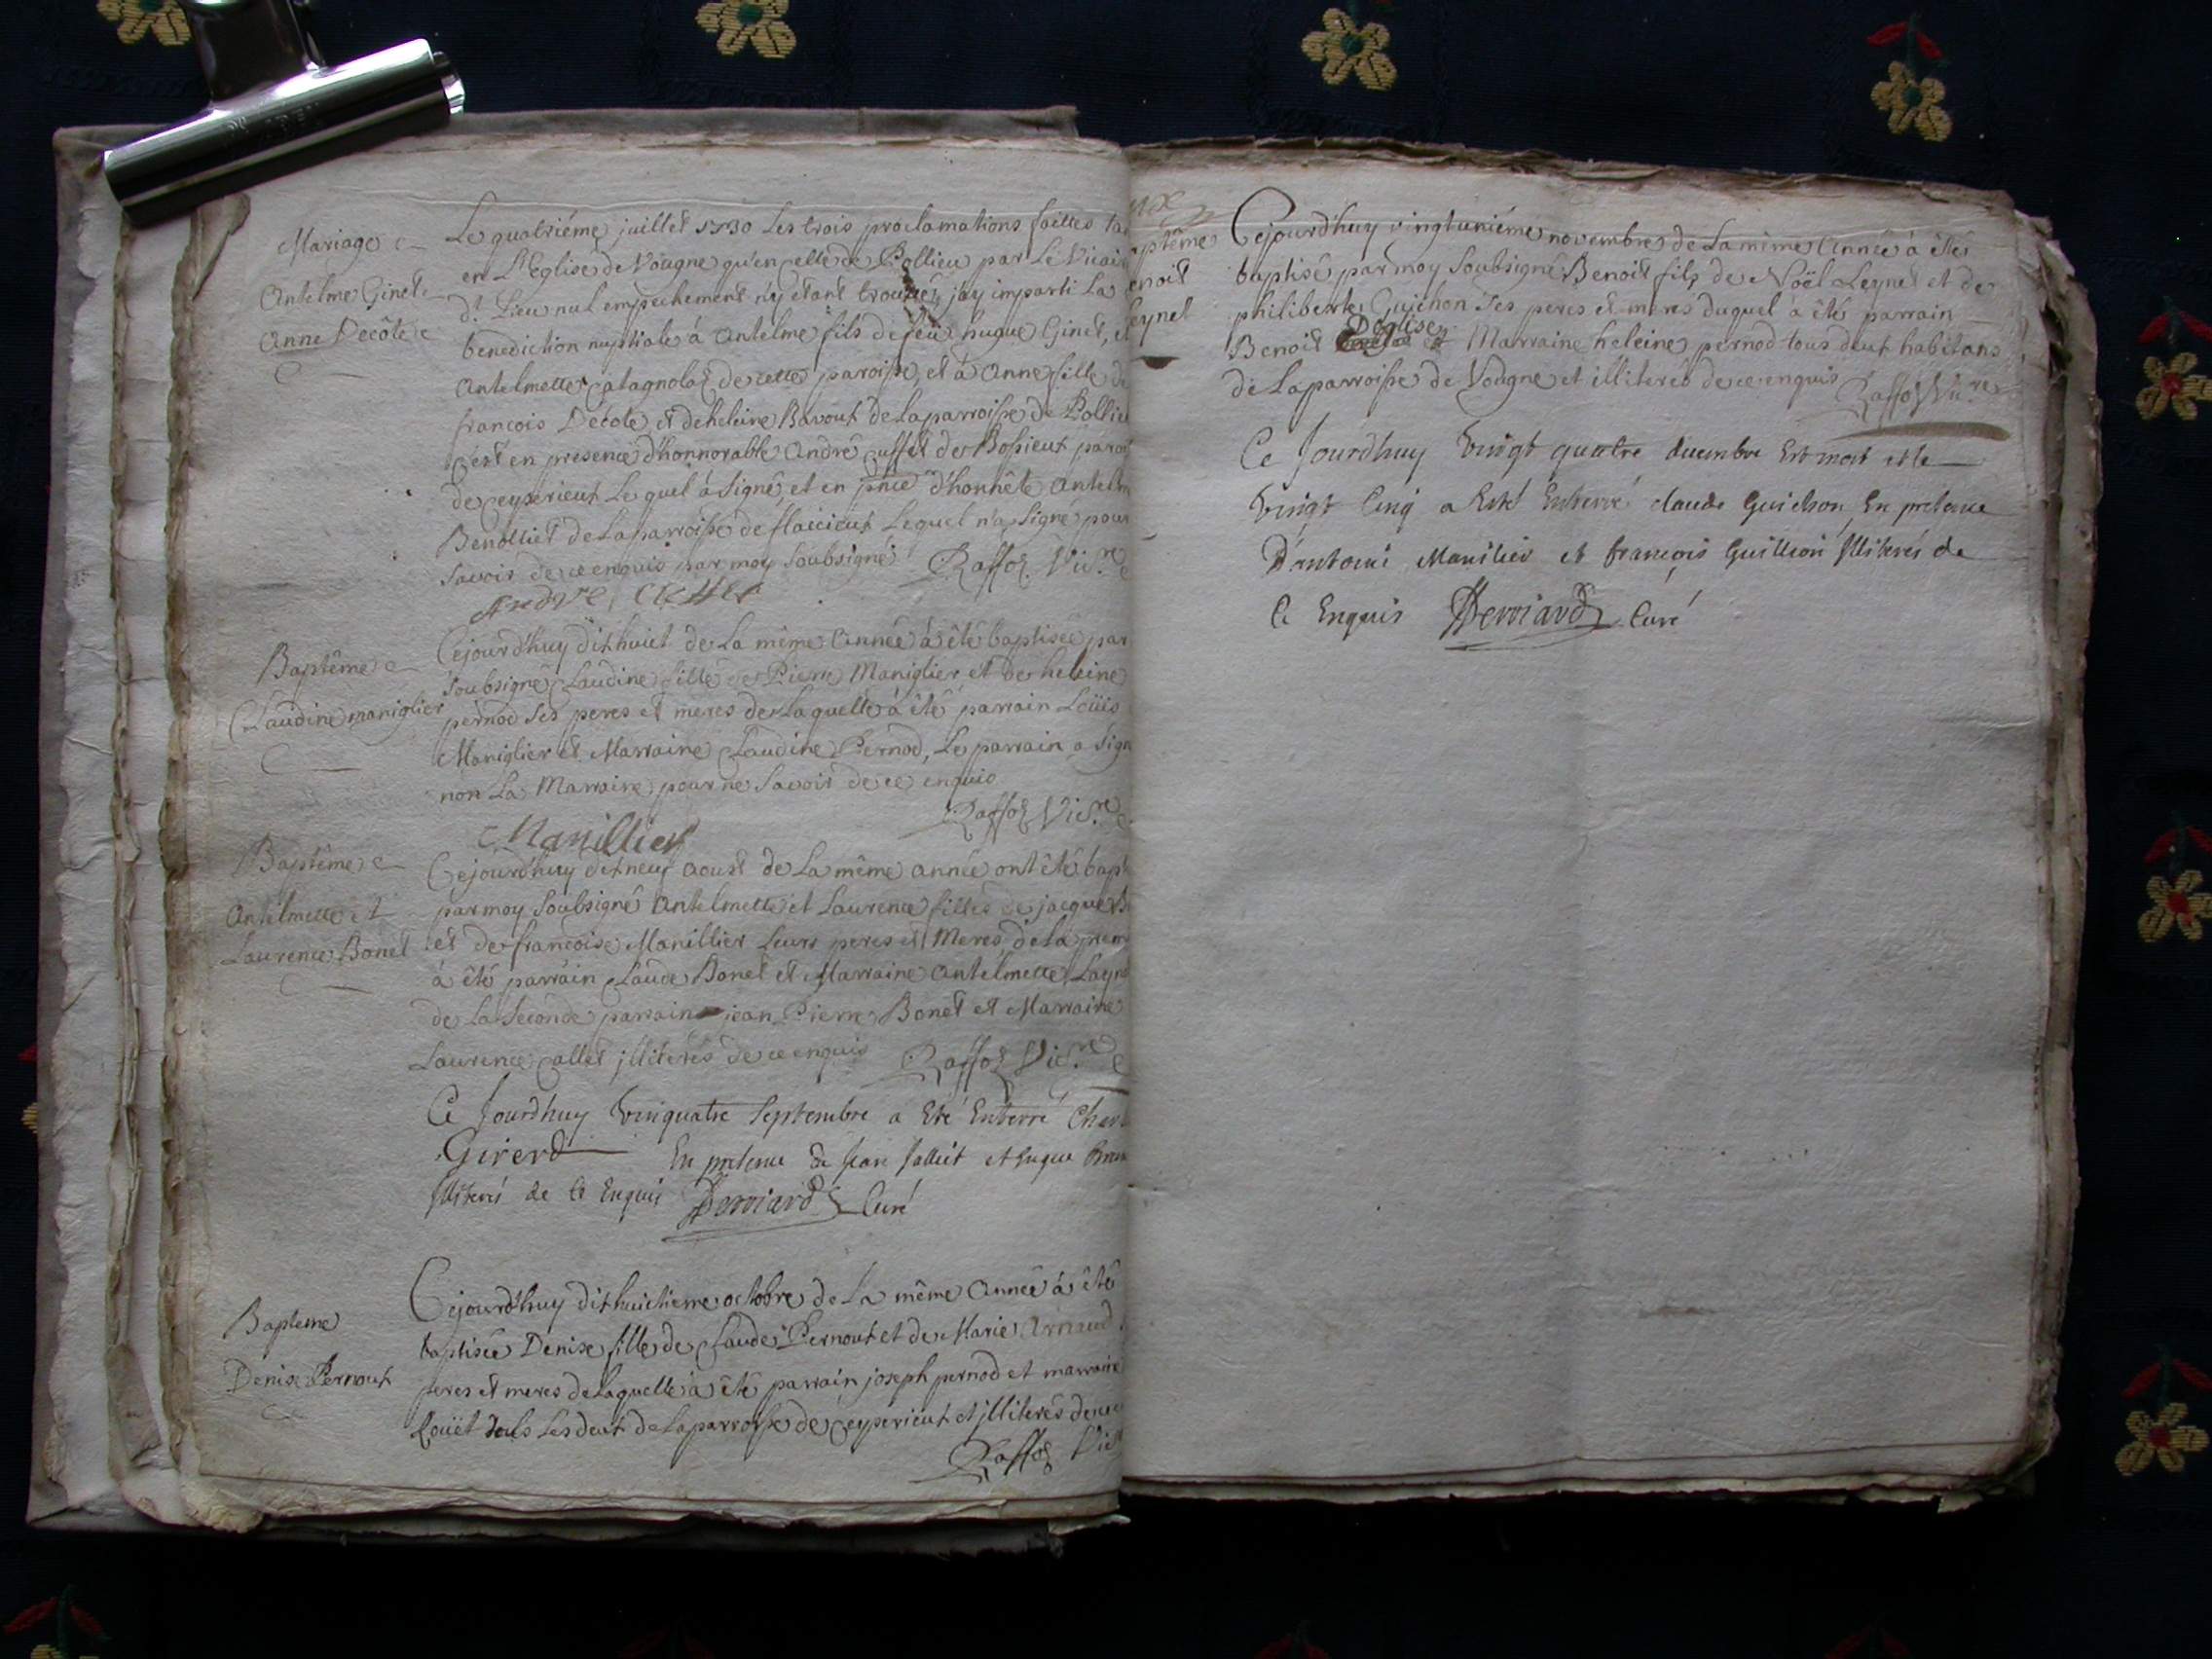 Mariage
Antelme Ginet
Anne Decôte
Le quatriéme juillet 1730 Les trois proclamations faittes
en L'Eglise de Vougne qu'en celle de Pollieu par Le Vicai
dt Lieu nul empechement n'y etant trouvé, j'ay imparti La
benediction nuptiale á Antelme fils de feu hugue Ginet, et
Antelmette Catagnolaz de cette paroisse, et á Anne fille de
francois Decôte et de heleine Bavout de La parroisse de Pollieu
C'est en presence d'honnorable André Cuffet de Bossieux paroi
de Ceyzerieux Le quel á Signé, et en pnce d'honnête Antelm
Benolliet de La parroisse de flaxieux Lequel n'a Signé pour
Savoir de ce enquis par moy Soubsigné Raffoz Vicre
André Cuffet
Baptême
Claudine maniglier
Cejourd'huy dixhuict de La même Année á été baptisée par
Soubsigné Claudine fille de Pierre Maniglier et de heleine
pernod Ses peres et meres de Laquelle á été parrain Loüis
Maniglier et Marraine Claudine Pernod, Le parrain a Sign
non La Marraine pour ne Savoir de ce enquis
Raffoz Vicre
Manillier
Baptême
Antelmette et
Laurence Bonet
Cejourd'huy dixneuf Aoust de La même année ont été bapt
par moy Soubsigné Antelmette et Laurence filles de jacque B
et de francoise Manillier Leurs peres et Meres de La prem
á été parrain Claude Bonet et Marraine Antelmette Layn
de La Seconde parrain jean Pierre Bonet et Marraine
Laurence Callet jlliterés de ce enquis Raffoz Vicre
Ce Jourdhuy Vinquatre Septembre a Eté Enterré Char
Girerd En presence de Jean Jallit et hugue
Illiterés de Ce Enquis Derriard Curé
Bapteme
Denise Pernout
Cejourd'huy dixhuictieme octobre de La même Année á été
baptisée Denise fille de Claude Pernout et de Marie Arnaud
peres et meres de Laquelle á été parrain joseph pernod et marraine
Roüet tous Les deux de La parroisse de Ceyzerieux et jlliterés de ce
Raffoz Vicre
aptême
enoit
eynet
Cejourd'huy vingtuniéme novembre de La même Année á été
baptisé par moy Soubsigné Benoit fils de Noël Leynet et de
philiberte Guichon Ses peres et meres duquel á été parrain
Benoit Deglise et Marraine heleine pernod tous deux habitans
de La parroisse de Vougne et illiterés de ce enquis Raffoz Vicre
Ce Jourdhuy Vingt quatre decembre Est mort et le
Vingt Cinq a Esté Enterré claude Guichon En presence
D'antoine Manilier et francois Guillion Illiterés de
Ce Enquis Derriard Curé